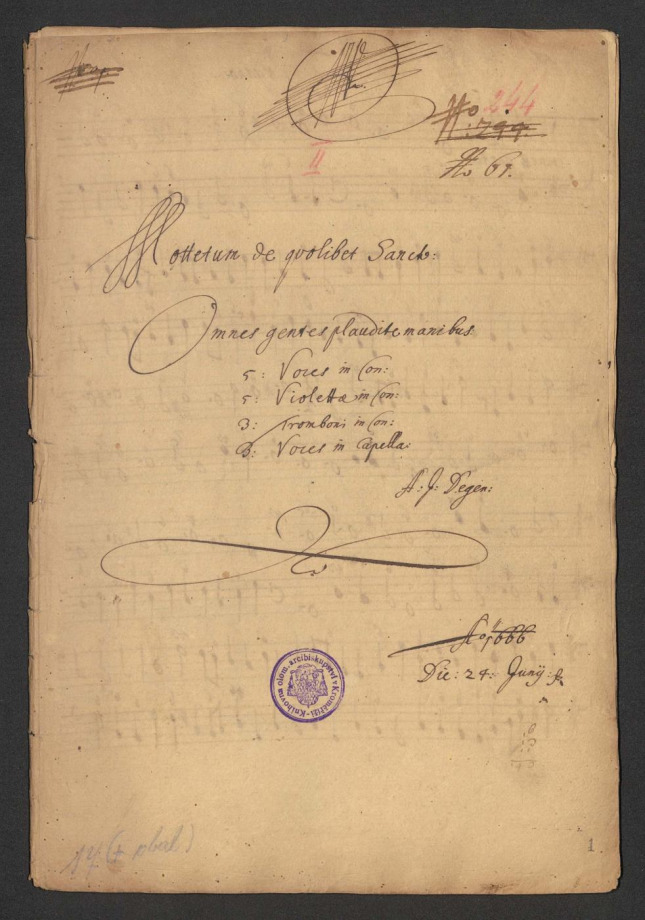 No 244
No: 299.
No 61.
II
Mottetum de quolibet Sanct:
Omnes gentes plaudite manibus
5: Voces in Con:
5: Violettæ in Con:
3: Tromboni in Con:
Voces in Capella:
A: J: Degen:
Ao 1666
Die: 24: Junij:
Knihovna olom. arcibiskupství v Kroměříži
17 (+ obal)
1